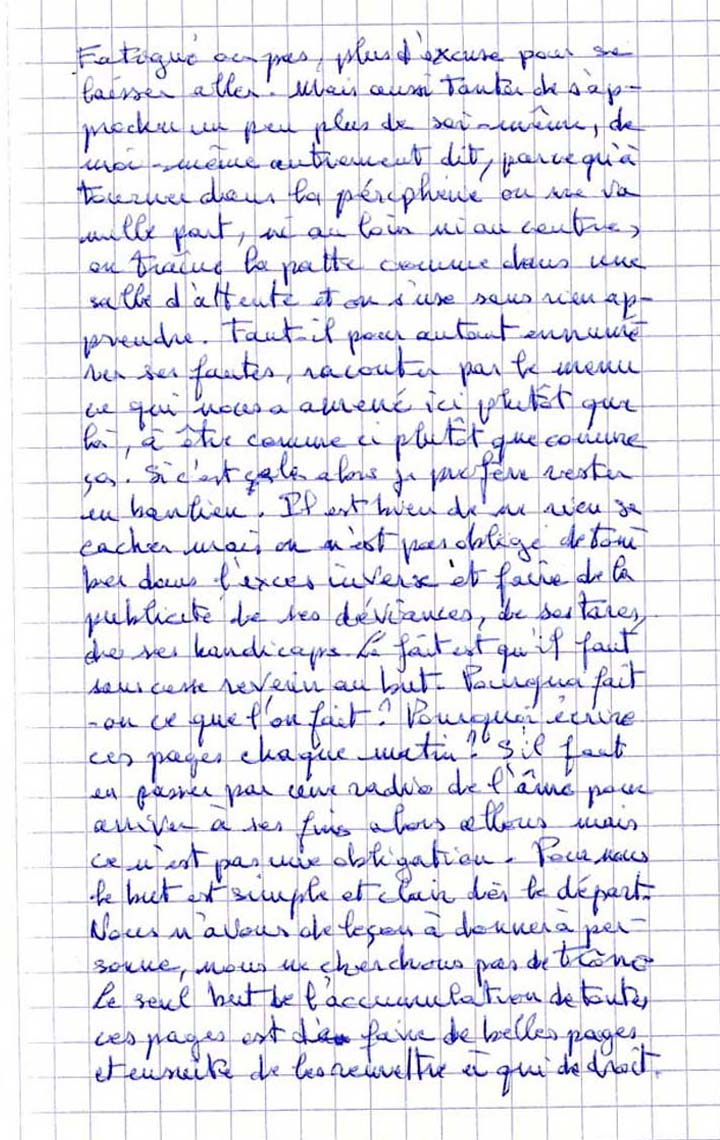 Fatigué ou pas, plus d'excuse pour se
laisser aller. Mais aussi tenter de s'ap-
procher un peu plus de soi-même, de
moi-même autrement dit, parce qu'à
tourner dans la périphérie on ne va
nulle part, ni au loin ni au centre,
on traîne la patte comme dans une
salle d'attente et on s'use sans rien ap-
prendre. Faut-il pour autant ennumé
rer ses fautes, raconter par le menu
ce qui nous a amené ici plutôt que
là, à être comme ci plutôt que comme
ça. Si c'est cela alors je préfère rester
en banlieu. Il est bien de ne rien se
cacher mais on n'est pas obligé de tom
ber dans l'exces inverse et faire de la
publicité de ses déviances, de ses tares,
de ses handicaps. Le fait est qu'il faut
sans cesse revenir au but. Pourquoi fait
-on ce que l'on fait? Pourquoi écrire
ces pages chaque matin? S'il faut
en passer par une radio de l'âme pour
arriver à ses fins alors allons mais
ce n'est pas une obligation. Pour nous
le but est simple et clair dès le départ.
Nous n'avons de leçon à donner à per-
sonne, nous ne cherchons pas de trône
Le seul but de l'accumulation de toutes
ces pages est de faire de belles pages
et ensuite de les remettre à qui de droit.